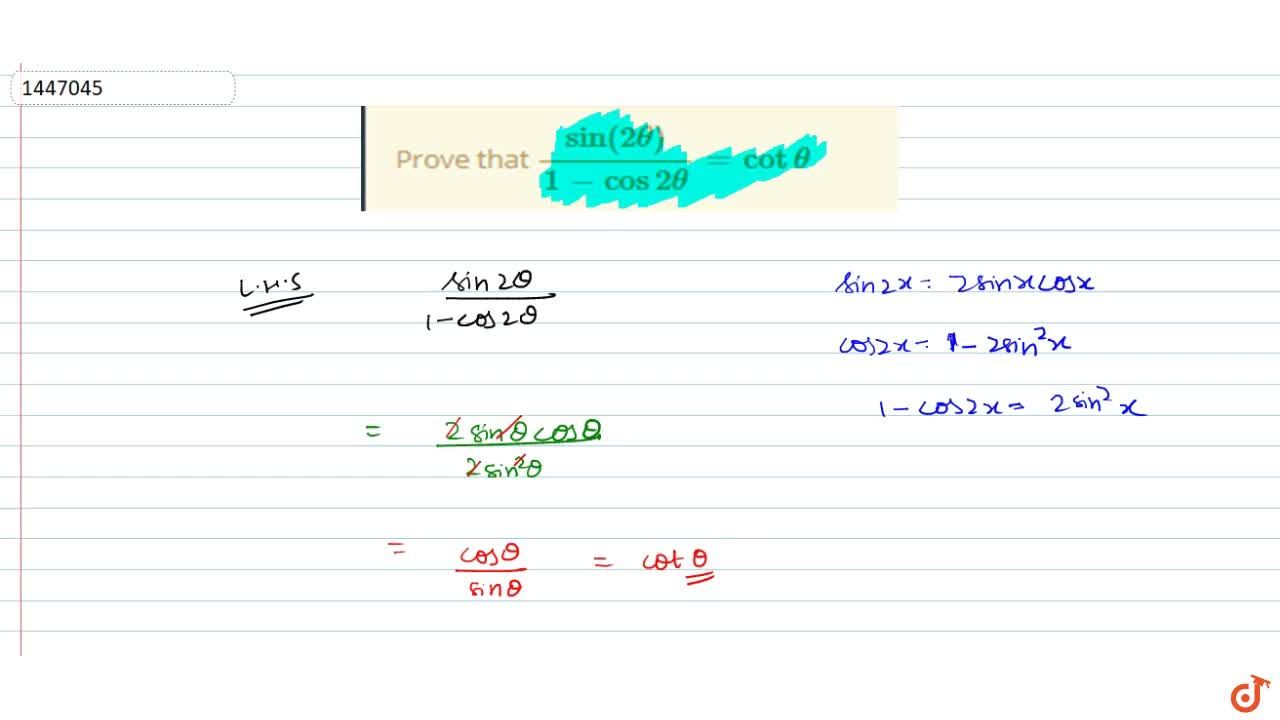 1447045
Prove that sin(2θ) / 1 − cos 2θ = cot θ
L.H.S sin 2θ / 1 − cos 2θ
sin 2x = 2 sin x cos x
cos 2x = 1 − 2 sin² x
1 − cos 2x = 2 sin² x
= 2 sin θ cos θ / 2 sin² θ
= cos θ / sin θ = cot θ